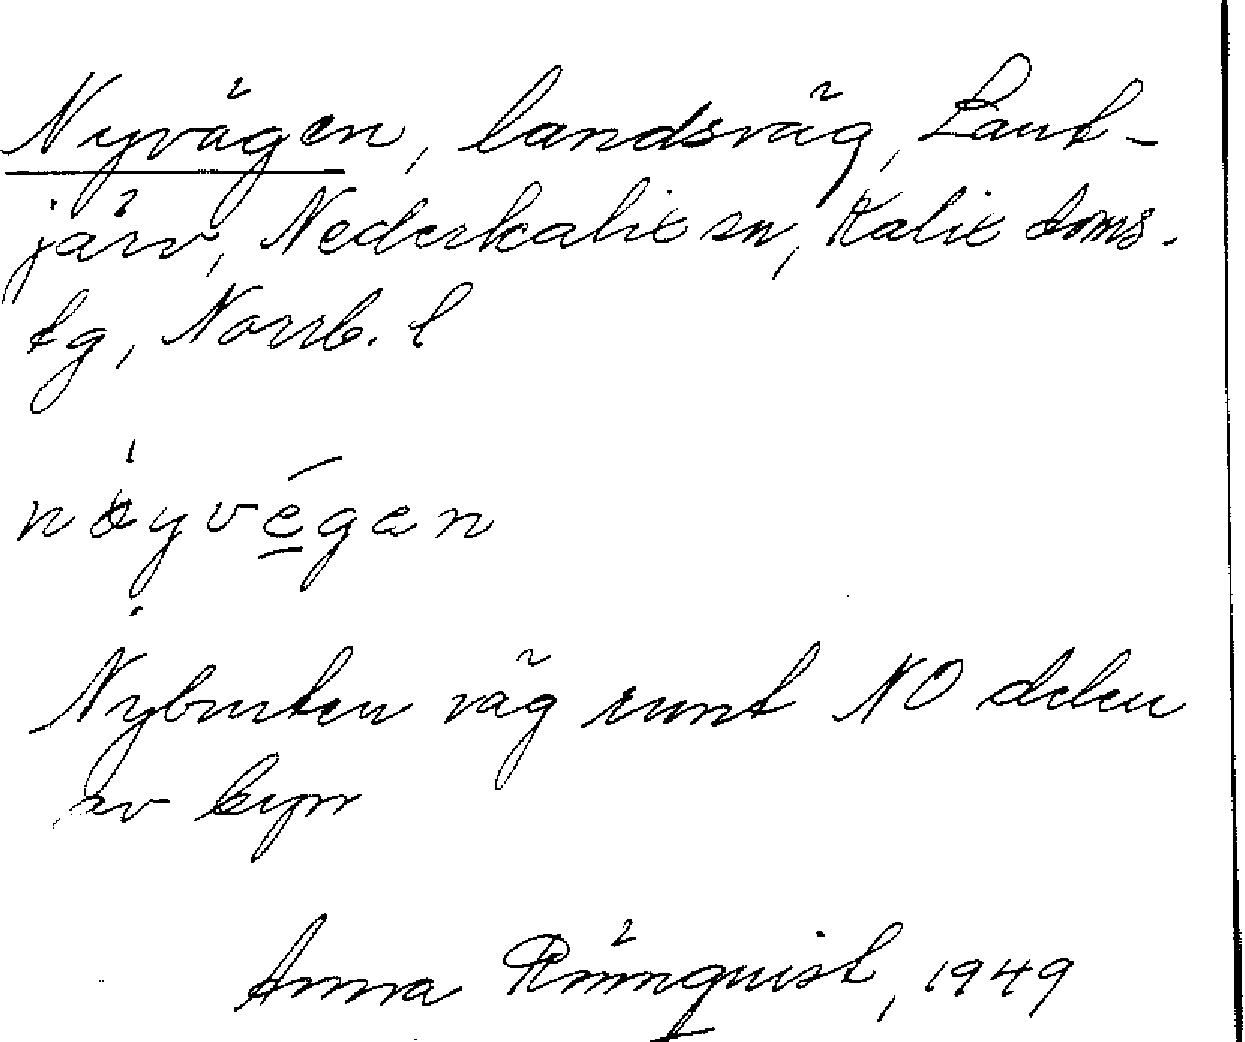 Nyvägen, landsväg, Lant-
järv, Nederkalix sn, Kalix doms.
tg, Norrb. l
nöyvégen
Nybruten väg runt NO delen
av byn
Anna Rönnquist, 1949